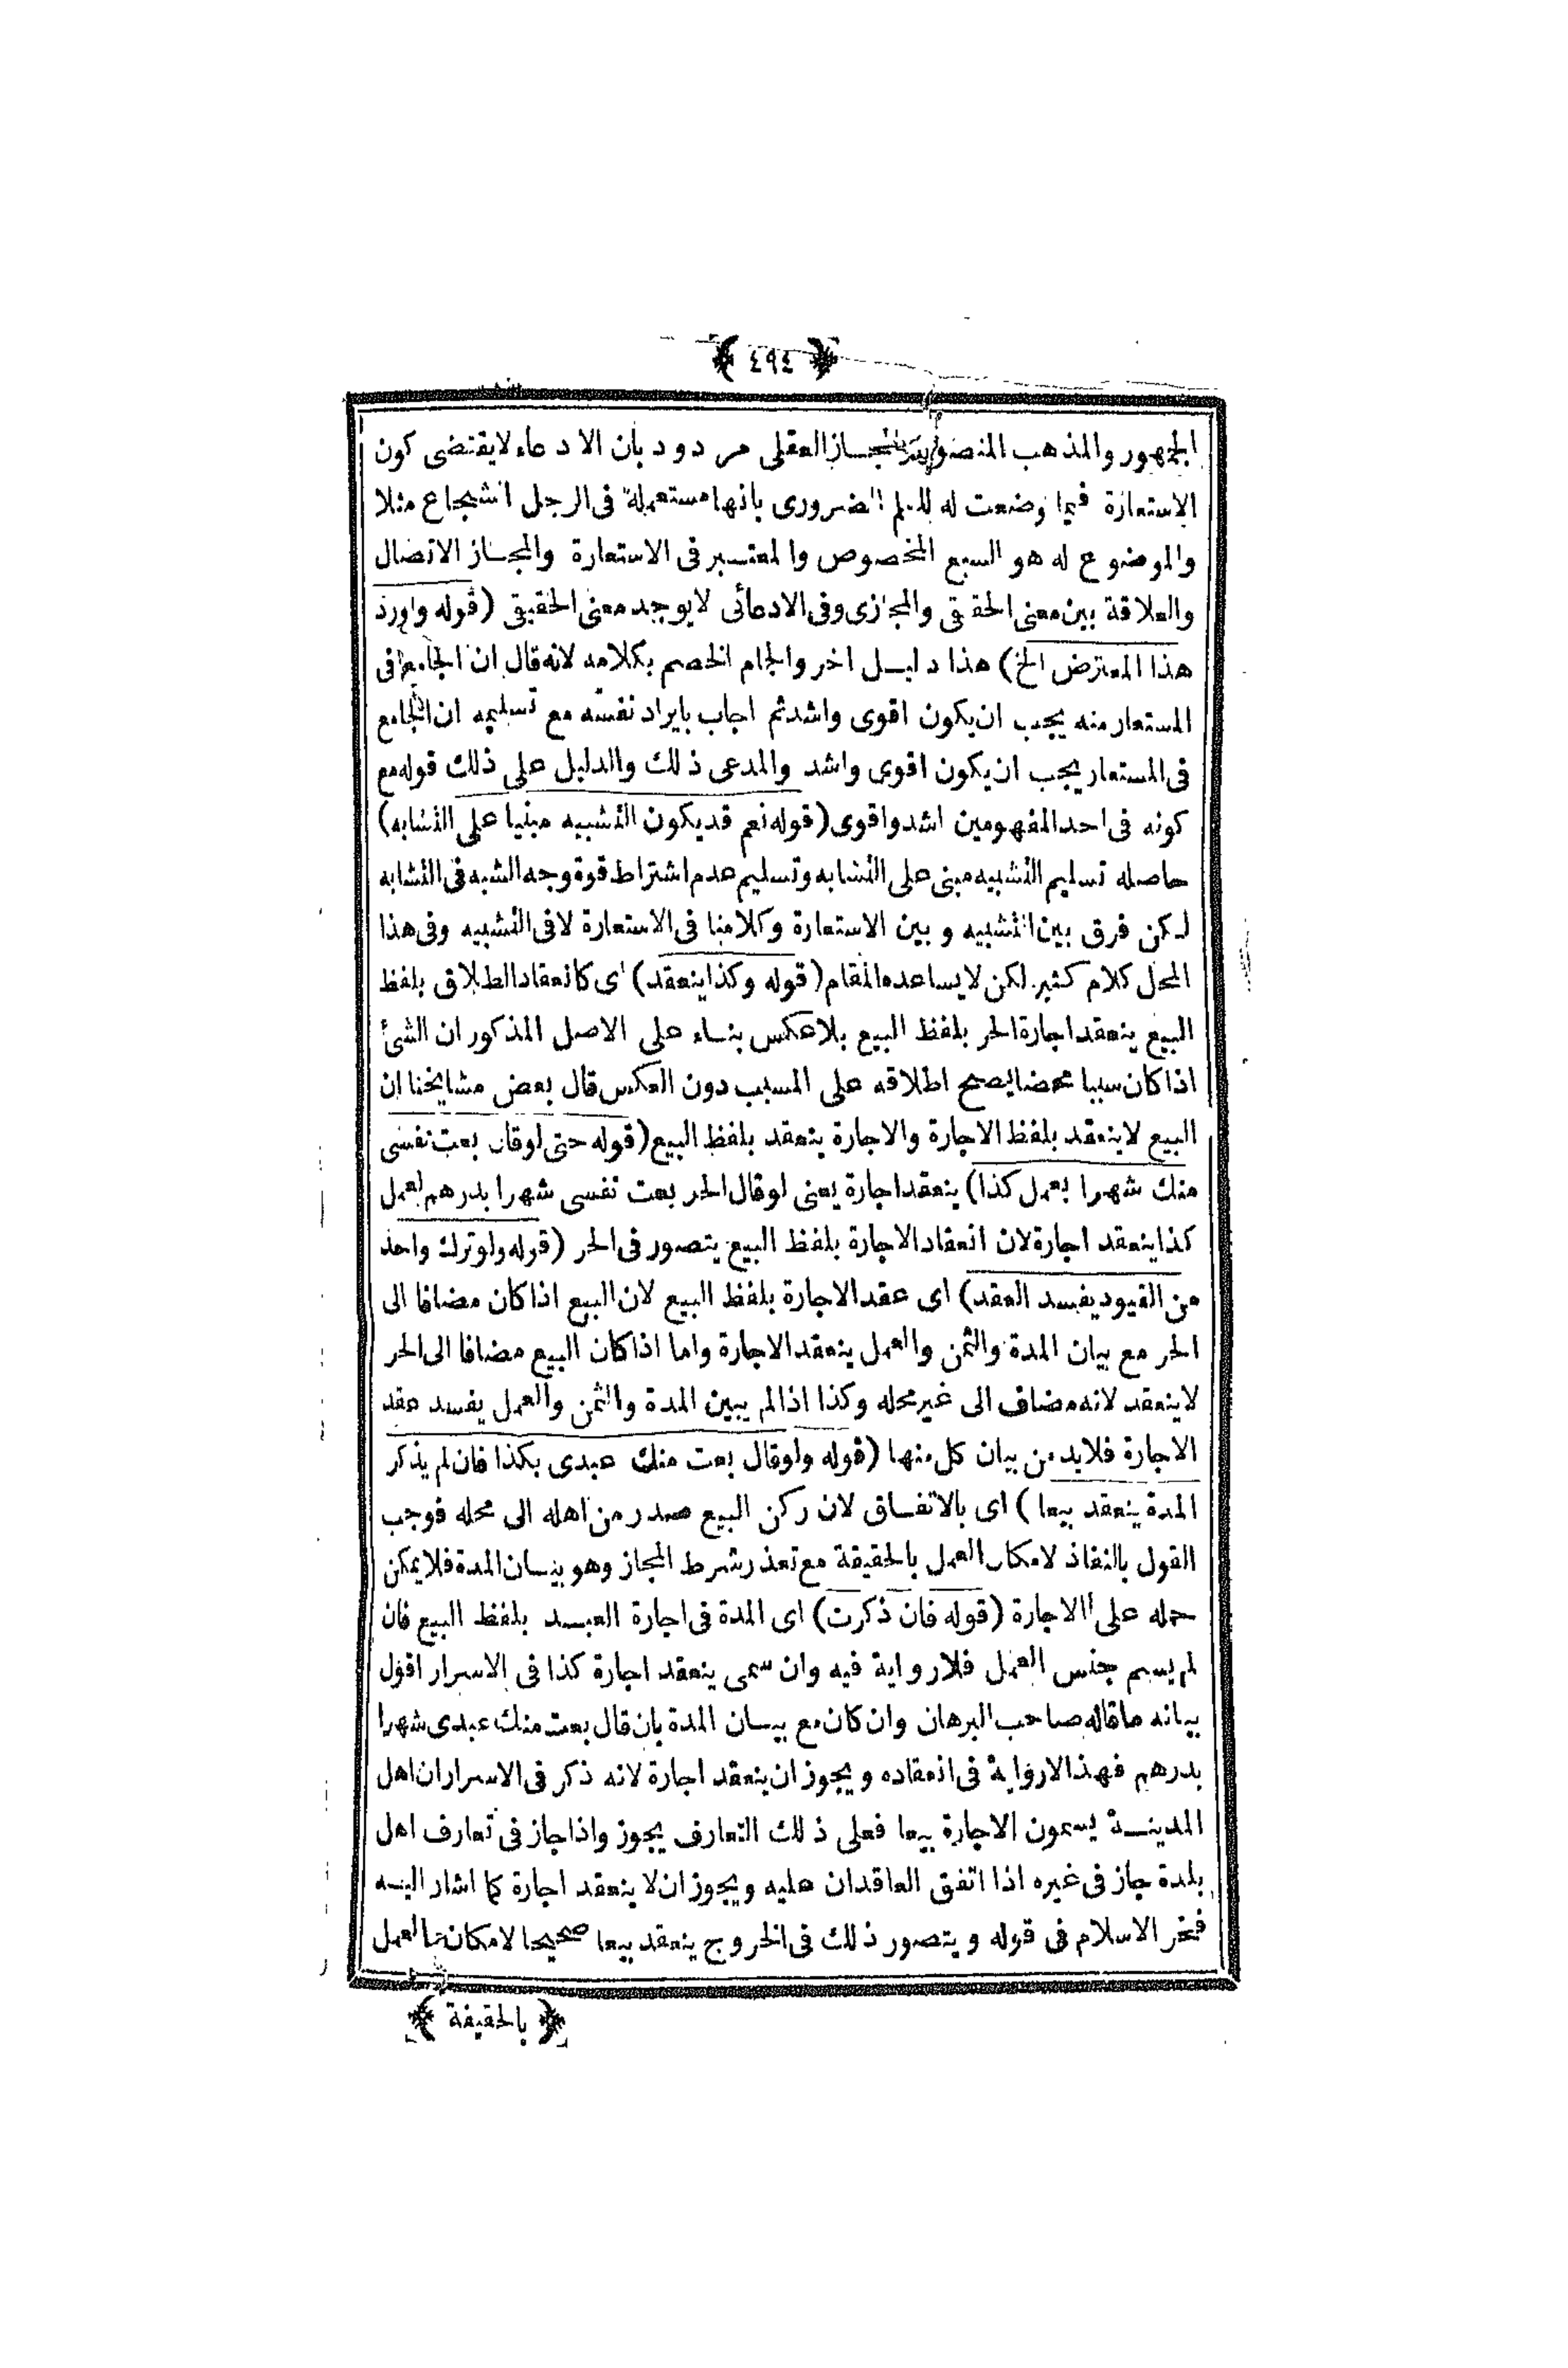 ﴿ ٤٩٤ ﴾
الجمهور والمذهب المنصور العقلى مردود بان الادعاء لايقتضى كون
الاستعارة فيما وضعت له للعلم الضرورى بانها مستعملة فى الرجل الشجاع مثلا
والموضوع له هو السبع المخصوص والمعتبر فى الاستعارة والمجاز الاتصال
والعلاقة بين معنى الحقيقى والمجازى وفى الادعائى لايوجد معنى الحقيقى (قوله واورد
هذا المعترض الخ) هذا دليل اخر والجام الخصم بكلامه لانه قال ان الجامع فى
المستعار منه يجب ان يكون اقوى واشد ثم اجاب بايراد نفسه مع تسليمه ان الجامع
فى المستعار يجب ان يكون اقوى واشد والمدعى ذلك والدليل على ذلك قوله مع
كونه فى احد المفهومين اشد واقوى (قوله نعم قد يكون التشبيه مبنيا على التشابه)
حاصله تسليم التشبيه مبنى على التشابه وتسليم عدم اشتراط قوة وجه الشبه فى التشابه
لكن فرق بين التشبيه و بين الاستعارة وكلامنا فى الاستعارة لا فى التشبيه وفى هذا
المحل كلام كثير لكن لايساعده المقام (قوله وكذا ينعقد) اى كانعقاد الطلاق بلفظ
البيع ينعقد اجارة الحر بلفظ البيع بلا عكس بناء على الاصل المذكور ان الشئ
اذا كان سببا محضا يصح اطلاقه على المسبب دون العكس قال بعض مشايخنا ان
البيع لاينعقد بلفظ الاجارة والاجارة ينعقد بلفظ البيع (قوله حتى لوقال بعت نفسى
منك شهرا بعمل كذا) ينعقد اجارة يعنى لوقال الحر بعت نفسى شهرا بدرهم لعمل
كذا ينعقد اجارة لان انعقاد الاجارة بلفظ البيع يتصور فى الحر (قوله ولوترك واحد
من القيود يفسد العقد) اى عقد الاجارة بلفظ البيع لان البيع اذا كان مضافا الى
الحر مع بيان المدة والثمن والعمل ينعقد الاجارة واما اذا كان البيع مضافا الى الحر
لاينعقد لانه مضاف الى غير محله وكذا اذا لم يبين المدة والثمن والعمل يفسد عقد
الاجارة فلابد من بيان كل منها (قوله ولوقال بعت منك عبدى بكذا فان لم يذكر
المدة ينعقد بيعا) اى بالاتفاق لان ركن البيع صدر من اهله الى محله فوجب
القول بالنفاذ لامكان العمل بالحقيقة مع تعذر شرط المجاز وهو بيان المدة فلا يمكن
حمله على الاجارة (قوله فان ذكرت) اى المدة فى اجارة العبد بلفظ البيع فان
لم يسم جنس العمل فلارواية فيه وان سمى ينعقد اجارة كذا فى الاسرار اقول
بيانه ماقاله صاحب البرهان وان كان مع بيان المدة بان قال بعت منك عبدى شهرا
بدرهم فهذا لارواية فى انعقاده و يجوز ان ينعقد اجارة لانه ذكر فى الاسرار ان اهل
المدينة يسمون الاجارة بيعا فعلى ذلك التعارف يجوز واذا جاز فى تعارف اهل
بلدة جاز فى غيره اذا اتفق العاقدان عليه ويجوز ان لا ينعقد اجارة كما اشار اليه
فخر الاسلام فى قوله و يتصور ذلك فى الحر وح ينعقد بيعا صحيحا لامكان العمل
﴿ بالحقيقة ﴾